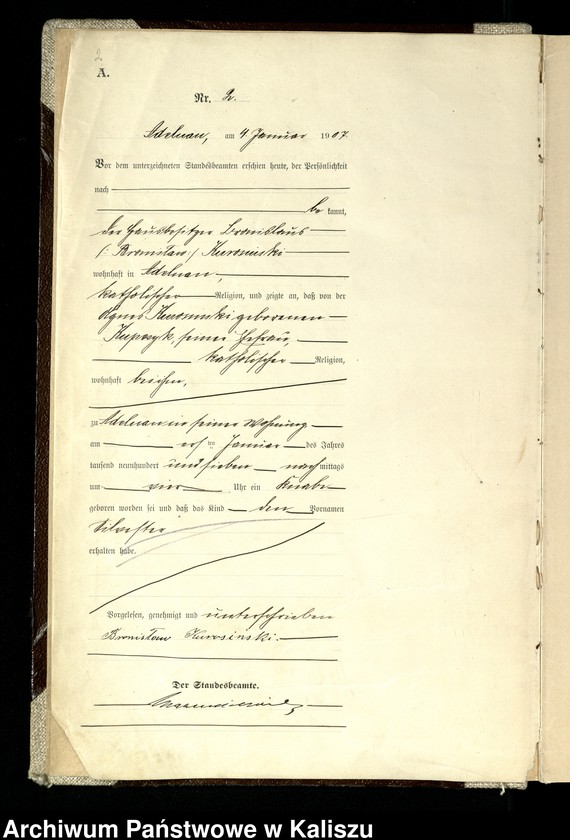 2
A.
Nr. 2.
Adelnau, am 4 Januar 1907.
Vor dem unterzeichneten Standesbeamten erschien heute, der Persönlichkeit
nach
be kannt,
der Hausbesitzer Bronislaus
(: Bronisław :) Kurosinski
wohnhaft in Adelnau,
katholischer Religion, und zeigte an, daß von der
Agnes Kurosinski geborenen
Kupczyk, seiner Ehefrau,
katholischer Religion,
wohnhaft bei ihm,
zu Adelnau in seiner Wohnung
am ersten Januar des Jahres
tausend neunhundert und sieben nach mittags
um vier Uhr ein Knabe
geboren worden sei und daß das Kind den Vornamen
Silvester
erhalten habe.
Vorgelesen, genehmigt und unterschrieben
Bronisław Kurosinski.
Der Standesbeamte.
Archiwum Państwowe w Kaliszu